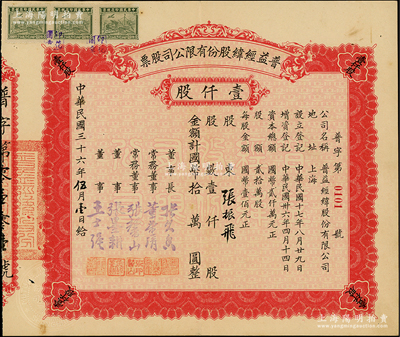 普益經緯股份有限公司股票
壹仟股
普字第0101號
公司名稱 普益經緯股份有限公司
地址 上海
設立登記 中華民國十七年八月廿九日
增資登記 中華民國卅六年四月十四日
資本總額 國幣貳仟萬元正
股數 貳拾萬股
每股金額 國幣壹佰元正
股東 張振飛
股份 壹仟股
金額計國幣拾萬圓整
董事長
常務董事
常務董事
董事
董事
中華民國三十六年伍月壹日給
上海陽明拍賣
www.yangmingauction.com